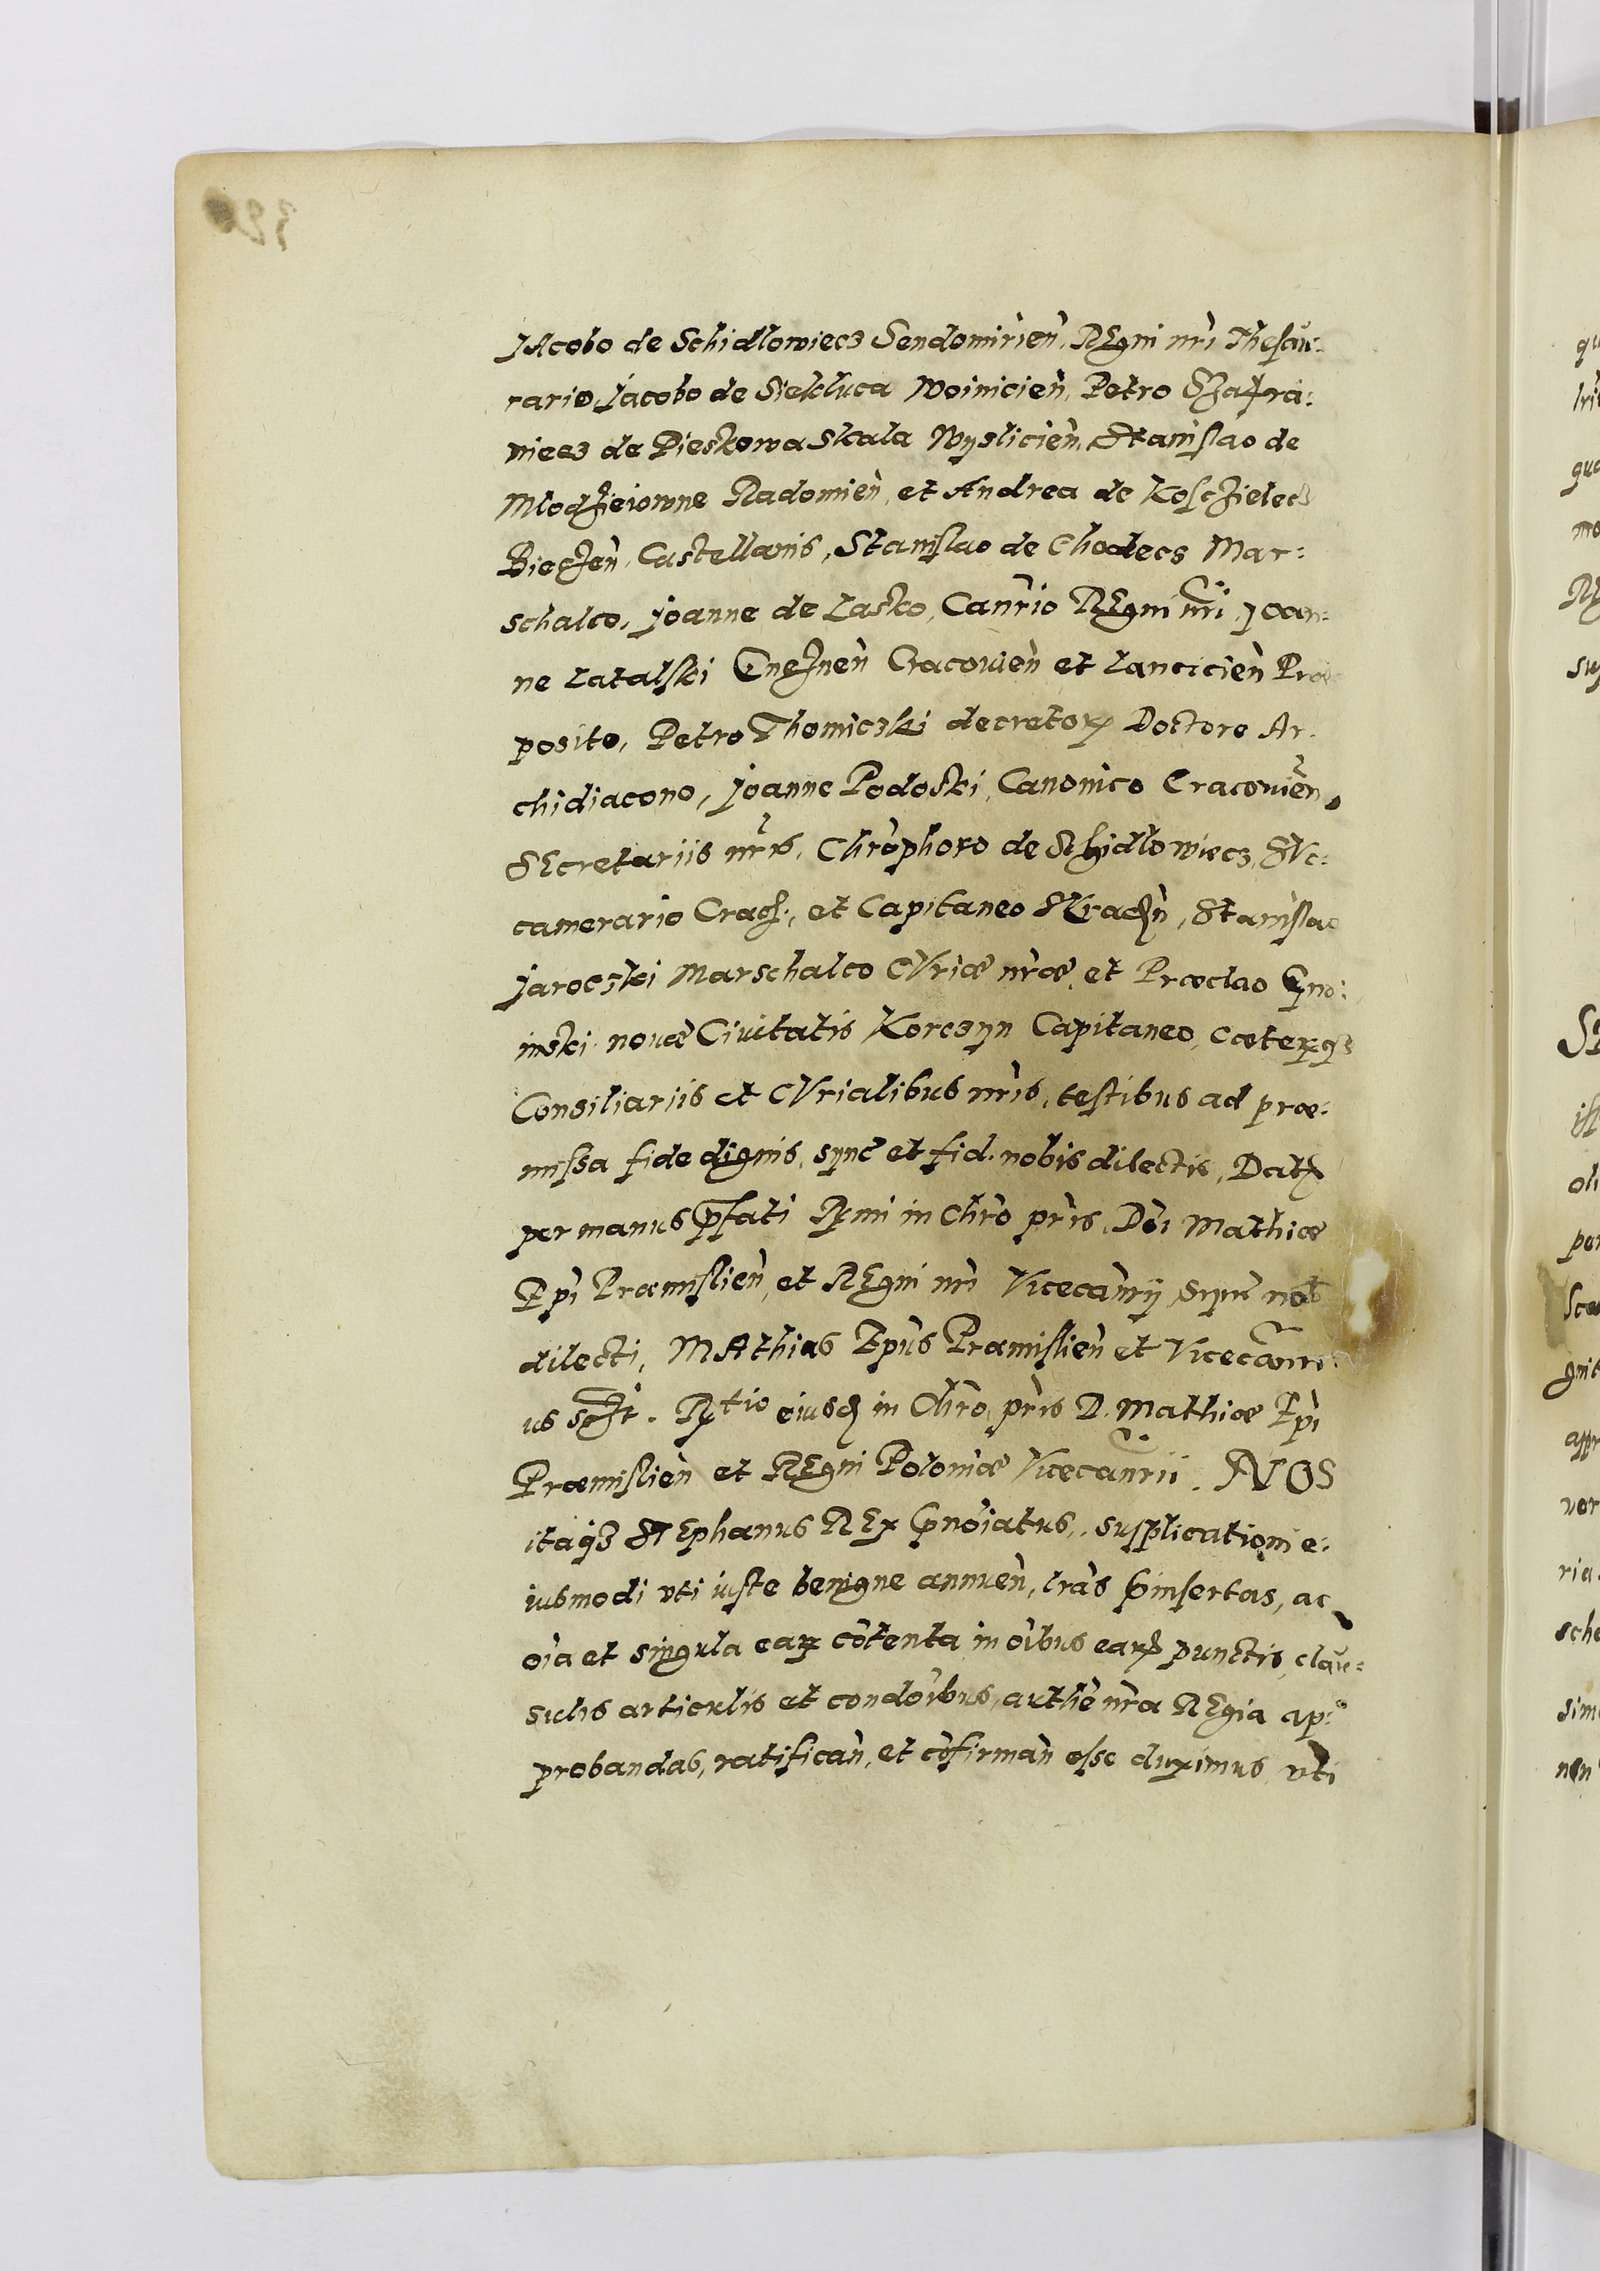 JAcobo de Schidlowiecz Sendomirien, REgni nri Thesau:
rario, Jacobo de Siekluca Woinicien, Petro Szafra:
niecz de Pieskowa Skala Wyslicien, Stanislao de
Mlodzieiowne Radomien, et Andrea de Koscielecz
Bieczen, Castellanis, Stanislao de Chodecz Mar:
schalco, Joanne de Lasko, Canrio REgni nri, Joan:
ne Latalski Gneznen Cracouien et Lancicien Prae
posito, Petro Thomiczki decretor Doctore Ar:
chidiacono, Joanne Podoski, Canonico Cracouien,
SEcretariis nris, Chrophoro de Schidlowiecz, SVc:
camerario, et Capitaneo, Stanislao
Jaroczki Marschalco CVriae nrae, et Praeclao Gno:
inski novae Ciuitatis Korczyn Capitaneo, Caeterisq
Consiliariis et CVrialibus nris, testibus ad prae:
missa fide dignis, sync et fid. nobis dilectis, Dat
per manus pfati Rmi in Chro pris, Dni Mathiae
Epi Praemislien, et REgni nri Vicecanrij, sync nob
dilecti, MAthias Epus Praemislien et Vicecanri:
us sszt. Rtio eiusd in Chro pris D. Mathiae Epi
Praemislien et REgni Poloniae Vicecanrii. NOS
itaq STEphanus REx pnoiatus, supplicationi e:
iusmodi vti iuste benigne annuen, lras pinsertas, ac
oia et singula ear cotenta in oibus ear punctis, clau:
sulis articulis et condoibus, authe nra REgia ap:
probandas, ratifican, et cofirman esse duximus, vti